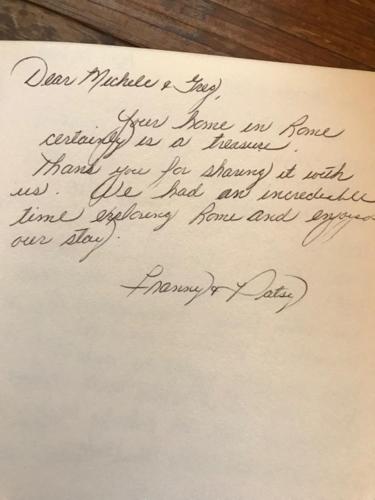 Dear Michele & Greg,
Your home in Rome
certainly is a treasure.
Thank you for sharing it with
us. We had an incredible
time exploring Rome and enjoyed
our stay.
Franny & Patsy